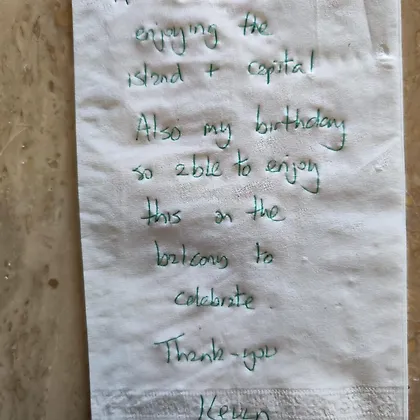 enjoying the
island + capital
Also my birthday
so able to enjoy
this on the
balcony to
celebrate
Thank-you
Kevin